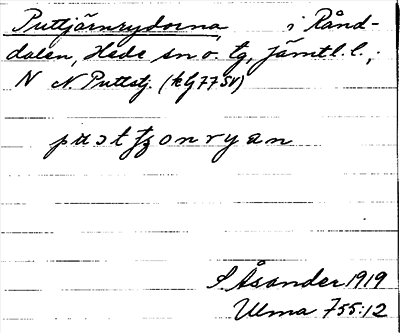 Puttjärnrydorna, i Rånd-
dalen, Hede sn o. tg, Jämtl. l.;
N N. Puttstj. (kg 77 SV)
Såsander 1919
Ulma 755:12